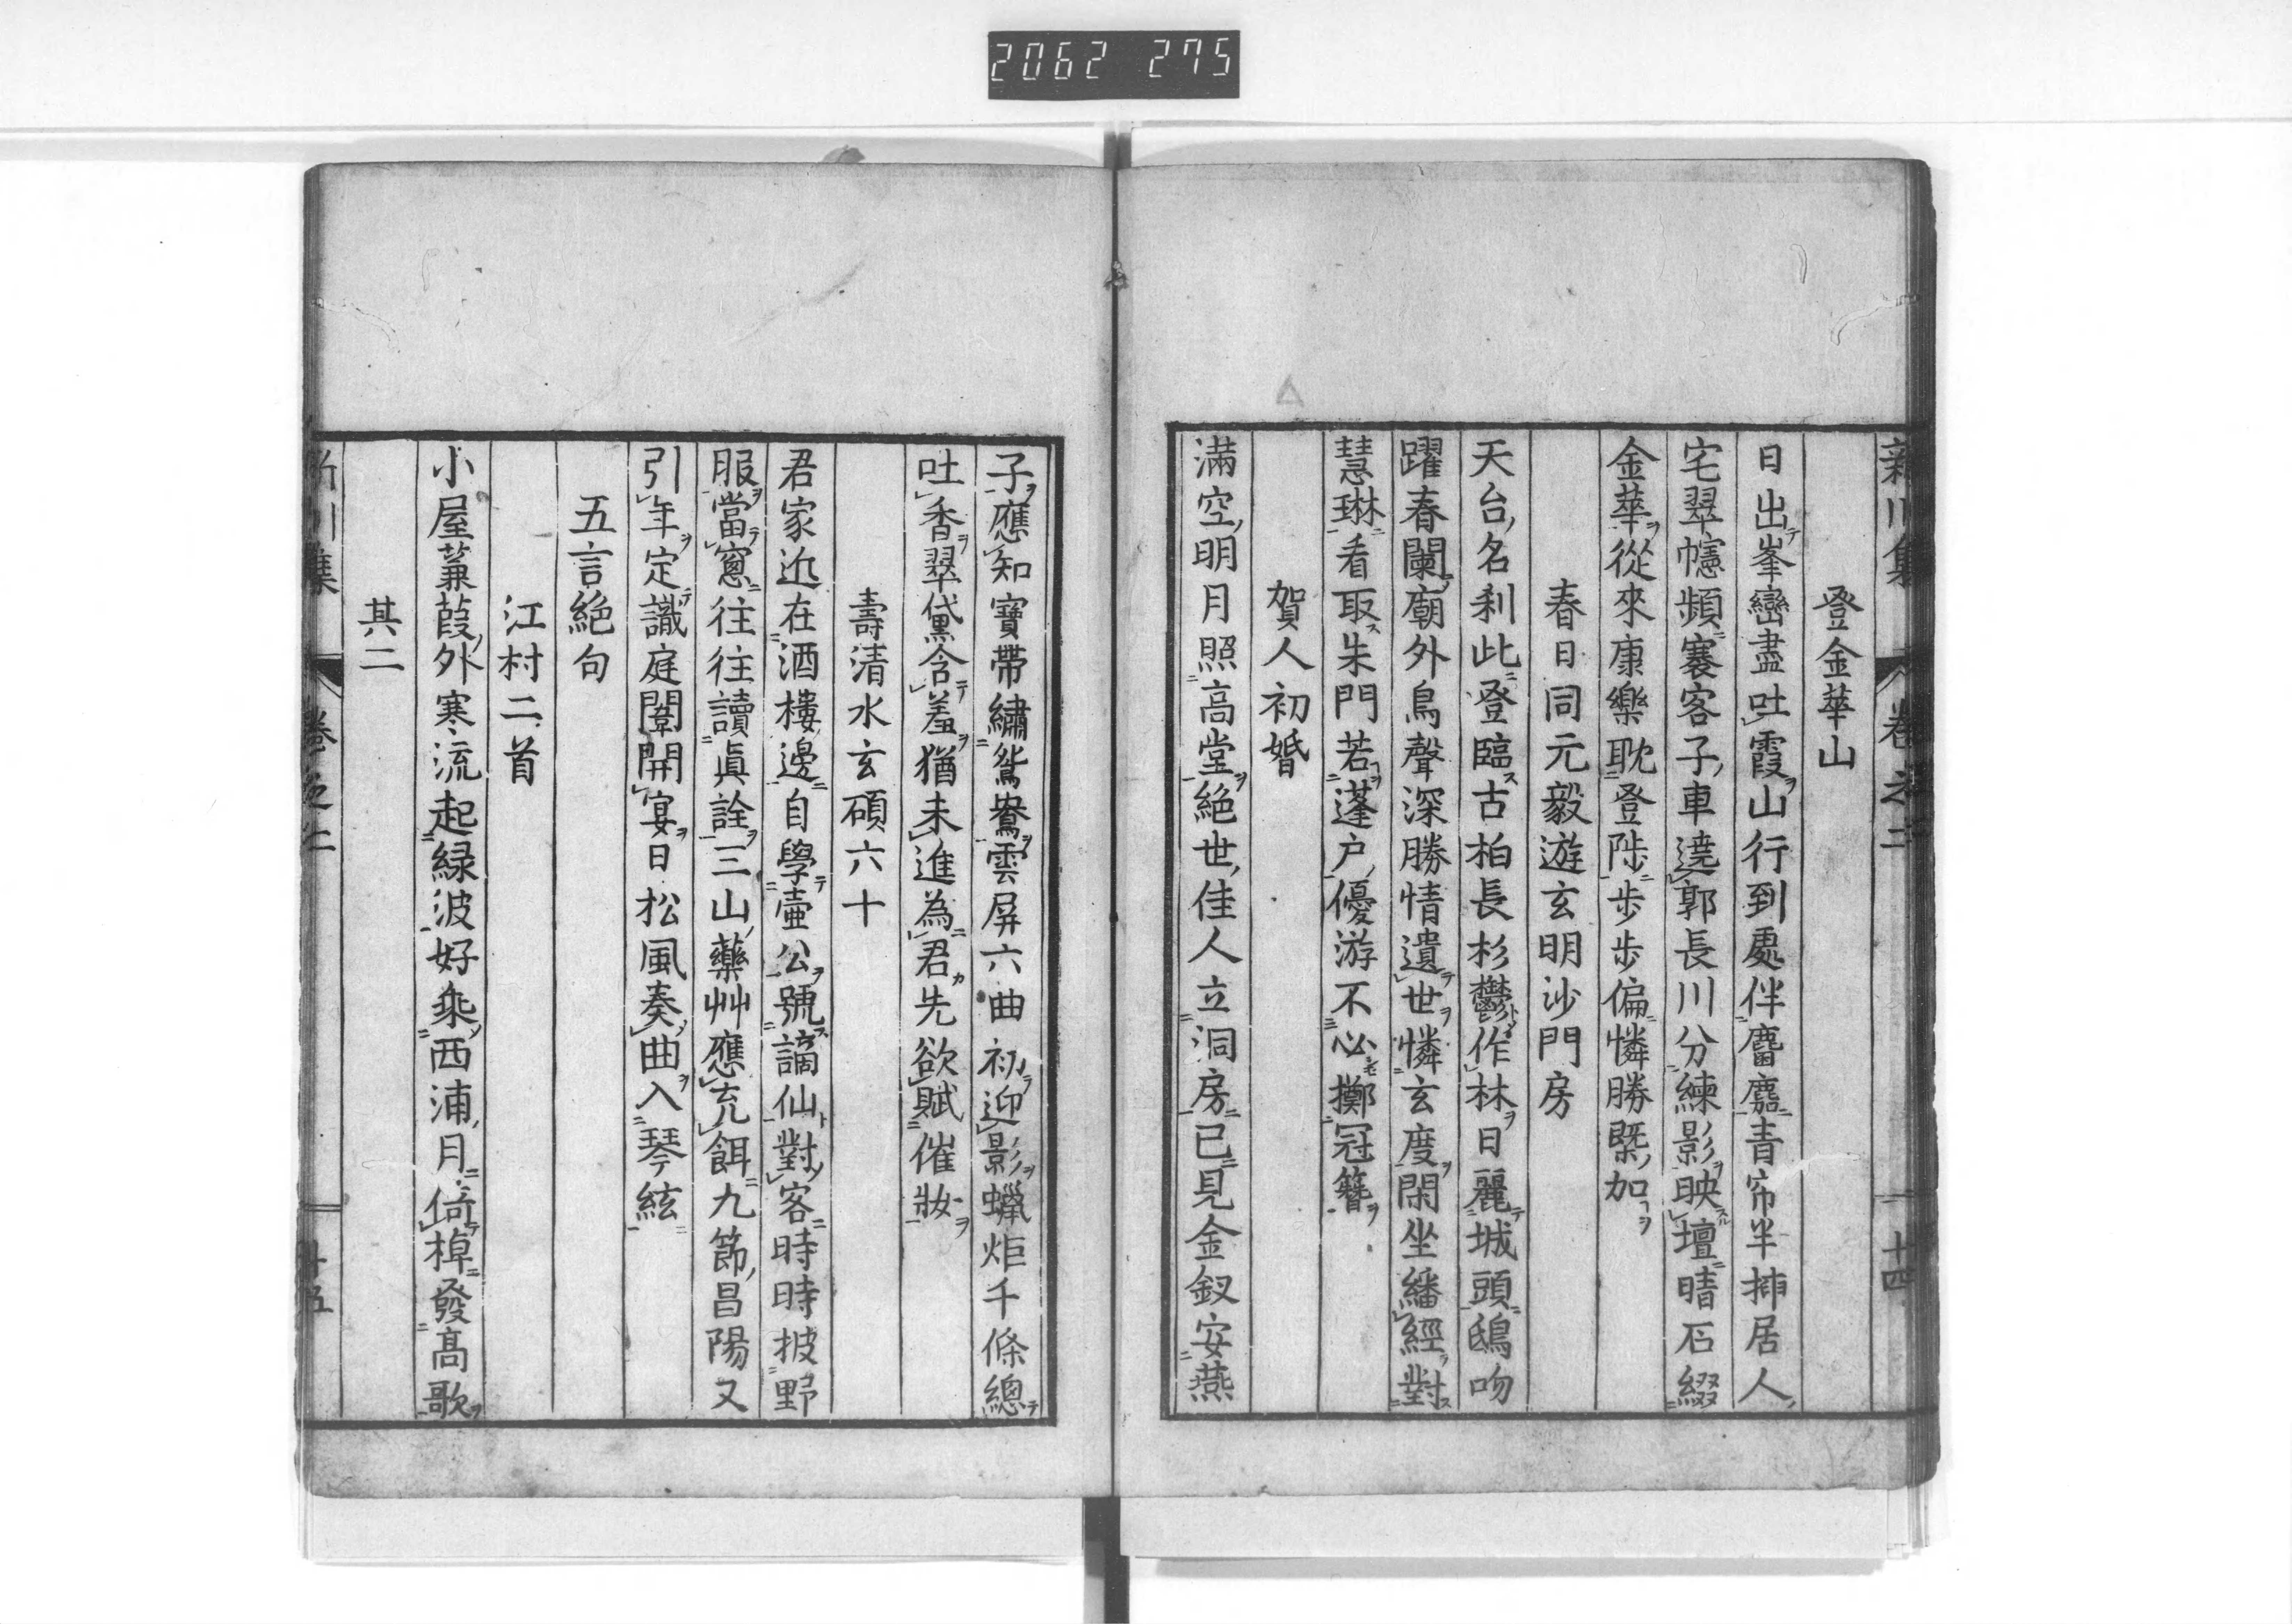 2062 275
新川集 卷之二 十四
登金華山
日出峯巒盡吐霞山行到處伴麕麚青帘半挿居人
宅翠幰頻褰客子車遶郭長川分練影映壇晴石綴
金華從來康樂耽登陟步步偏憐勝槩加
春日同元毅遊玄明沙門房
天台名刹此登臨古柏長杉鬱作林日麗城頭鴟吻
躍春闌廟外鳥聲深勝情遺世憐玄度閑坐繙經對
慧琳看取朱門若蓬戸優游不必擲冠簪
賀人初婚
滿空明月照高堂絕世佳人立洞房已見金釵安燕
子應知寶帶繡鴛鴦雲屏六曲初迎影蠟炬千條總
吐香翠黛含羞猶未進為君先欲賦催妝
壽清水玄碩六十
君家近在酒樓邊自學壺公號謫仙對客時時披野
服當窻往往讀眞詮三山藥艸應充餌九節昌陽又
引年定識庭闈開宴日松風奏曲入琴絃
五言絕句
江村二首
小屋蒹葭外寒流起緑波好乘西浦月倚棹發高歌
其二
新川集 卷之二 十五